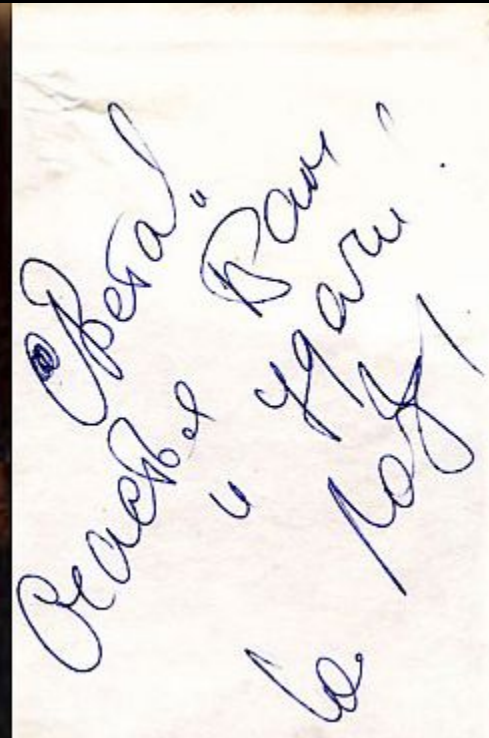 Света!
Счастья Вам
и удачи!